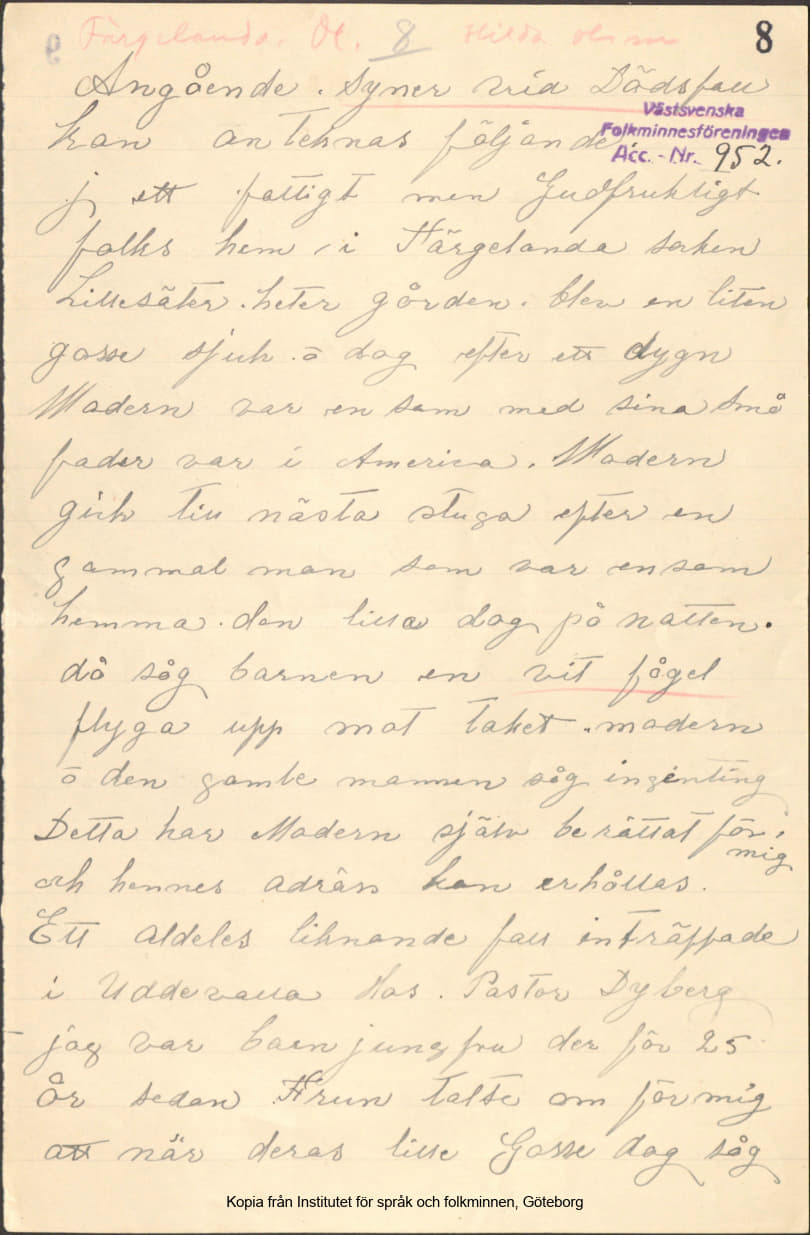 Färgelanda. Dl. 8 Hilda Olsson
8
Angående. syner vid Dödsfall
Västsvenska
Folkminnesföreningen
Acc.-Nr. 952.
kan antecknas följande
j ett fattigt men Gudfruktigt
folks hem i Färgelanda socken
Lillesäter. heter gården. blev en liten
gosse sjuk. ō dog efter ett dygn
Modern var ensam med sina små
fader var i America. Modern
gick till nästa stuga efter en
gammal man som var ensam
hemma. den lilla dog på natten.
då såg barnen en vit fågel
flyga upp mot taket. modern
ō den gamle mannen såg ingenting
Detta har Modern själv berättat för
mig
och hennes adräss kan erhållas.
Ett aldeles liknande fall inträffade
i Uddevalla Hos. Pastor Dyberg
jag var barnjungfru der för 25
År sedan Frun talte om för mig
att när deras lille Gosse dog såg
Kopia från Institutet för språk och folkminnen, Göteborg